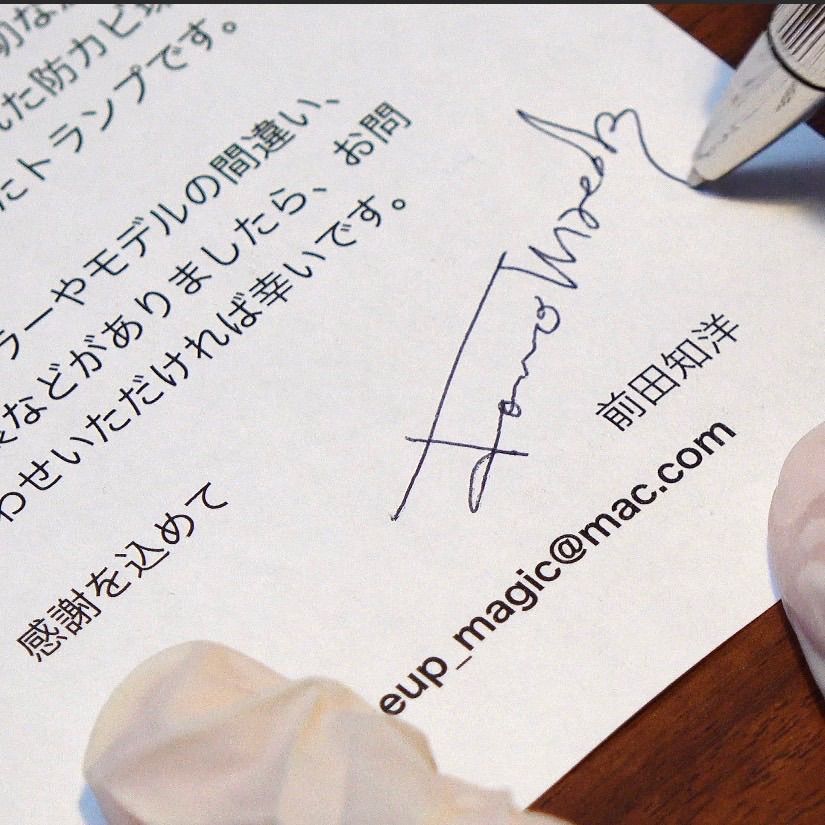 た防カビ
トランプです。
ラーやモデルの間違い、
などがありましたら、お問
わせいただければ幸いです。
感謝を込めて
Tomo Maeda
前田知洋
eup_magic@mac.com